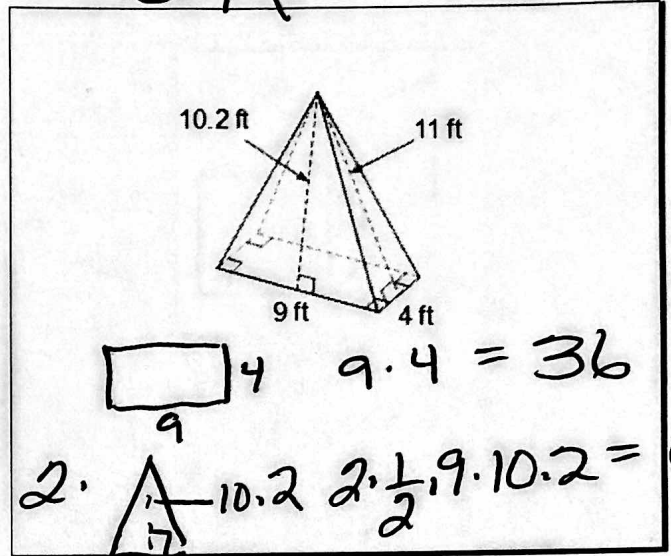 10.2 ft
11 ft
9 ft
4 ft
4
9 · 4 = 36
9
2 ·
10.2
2 · 1/2 · 9 · 10.2 =